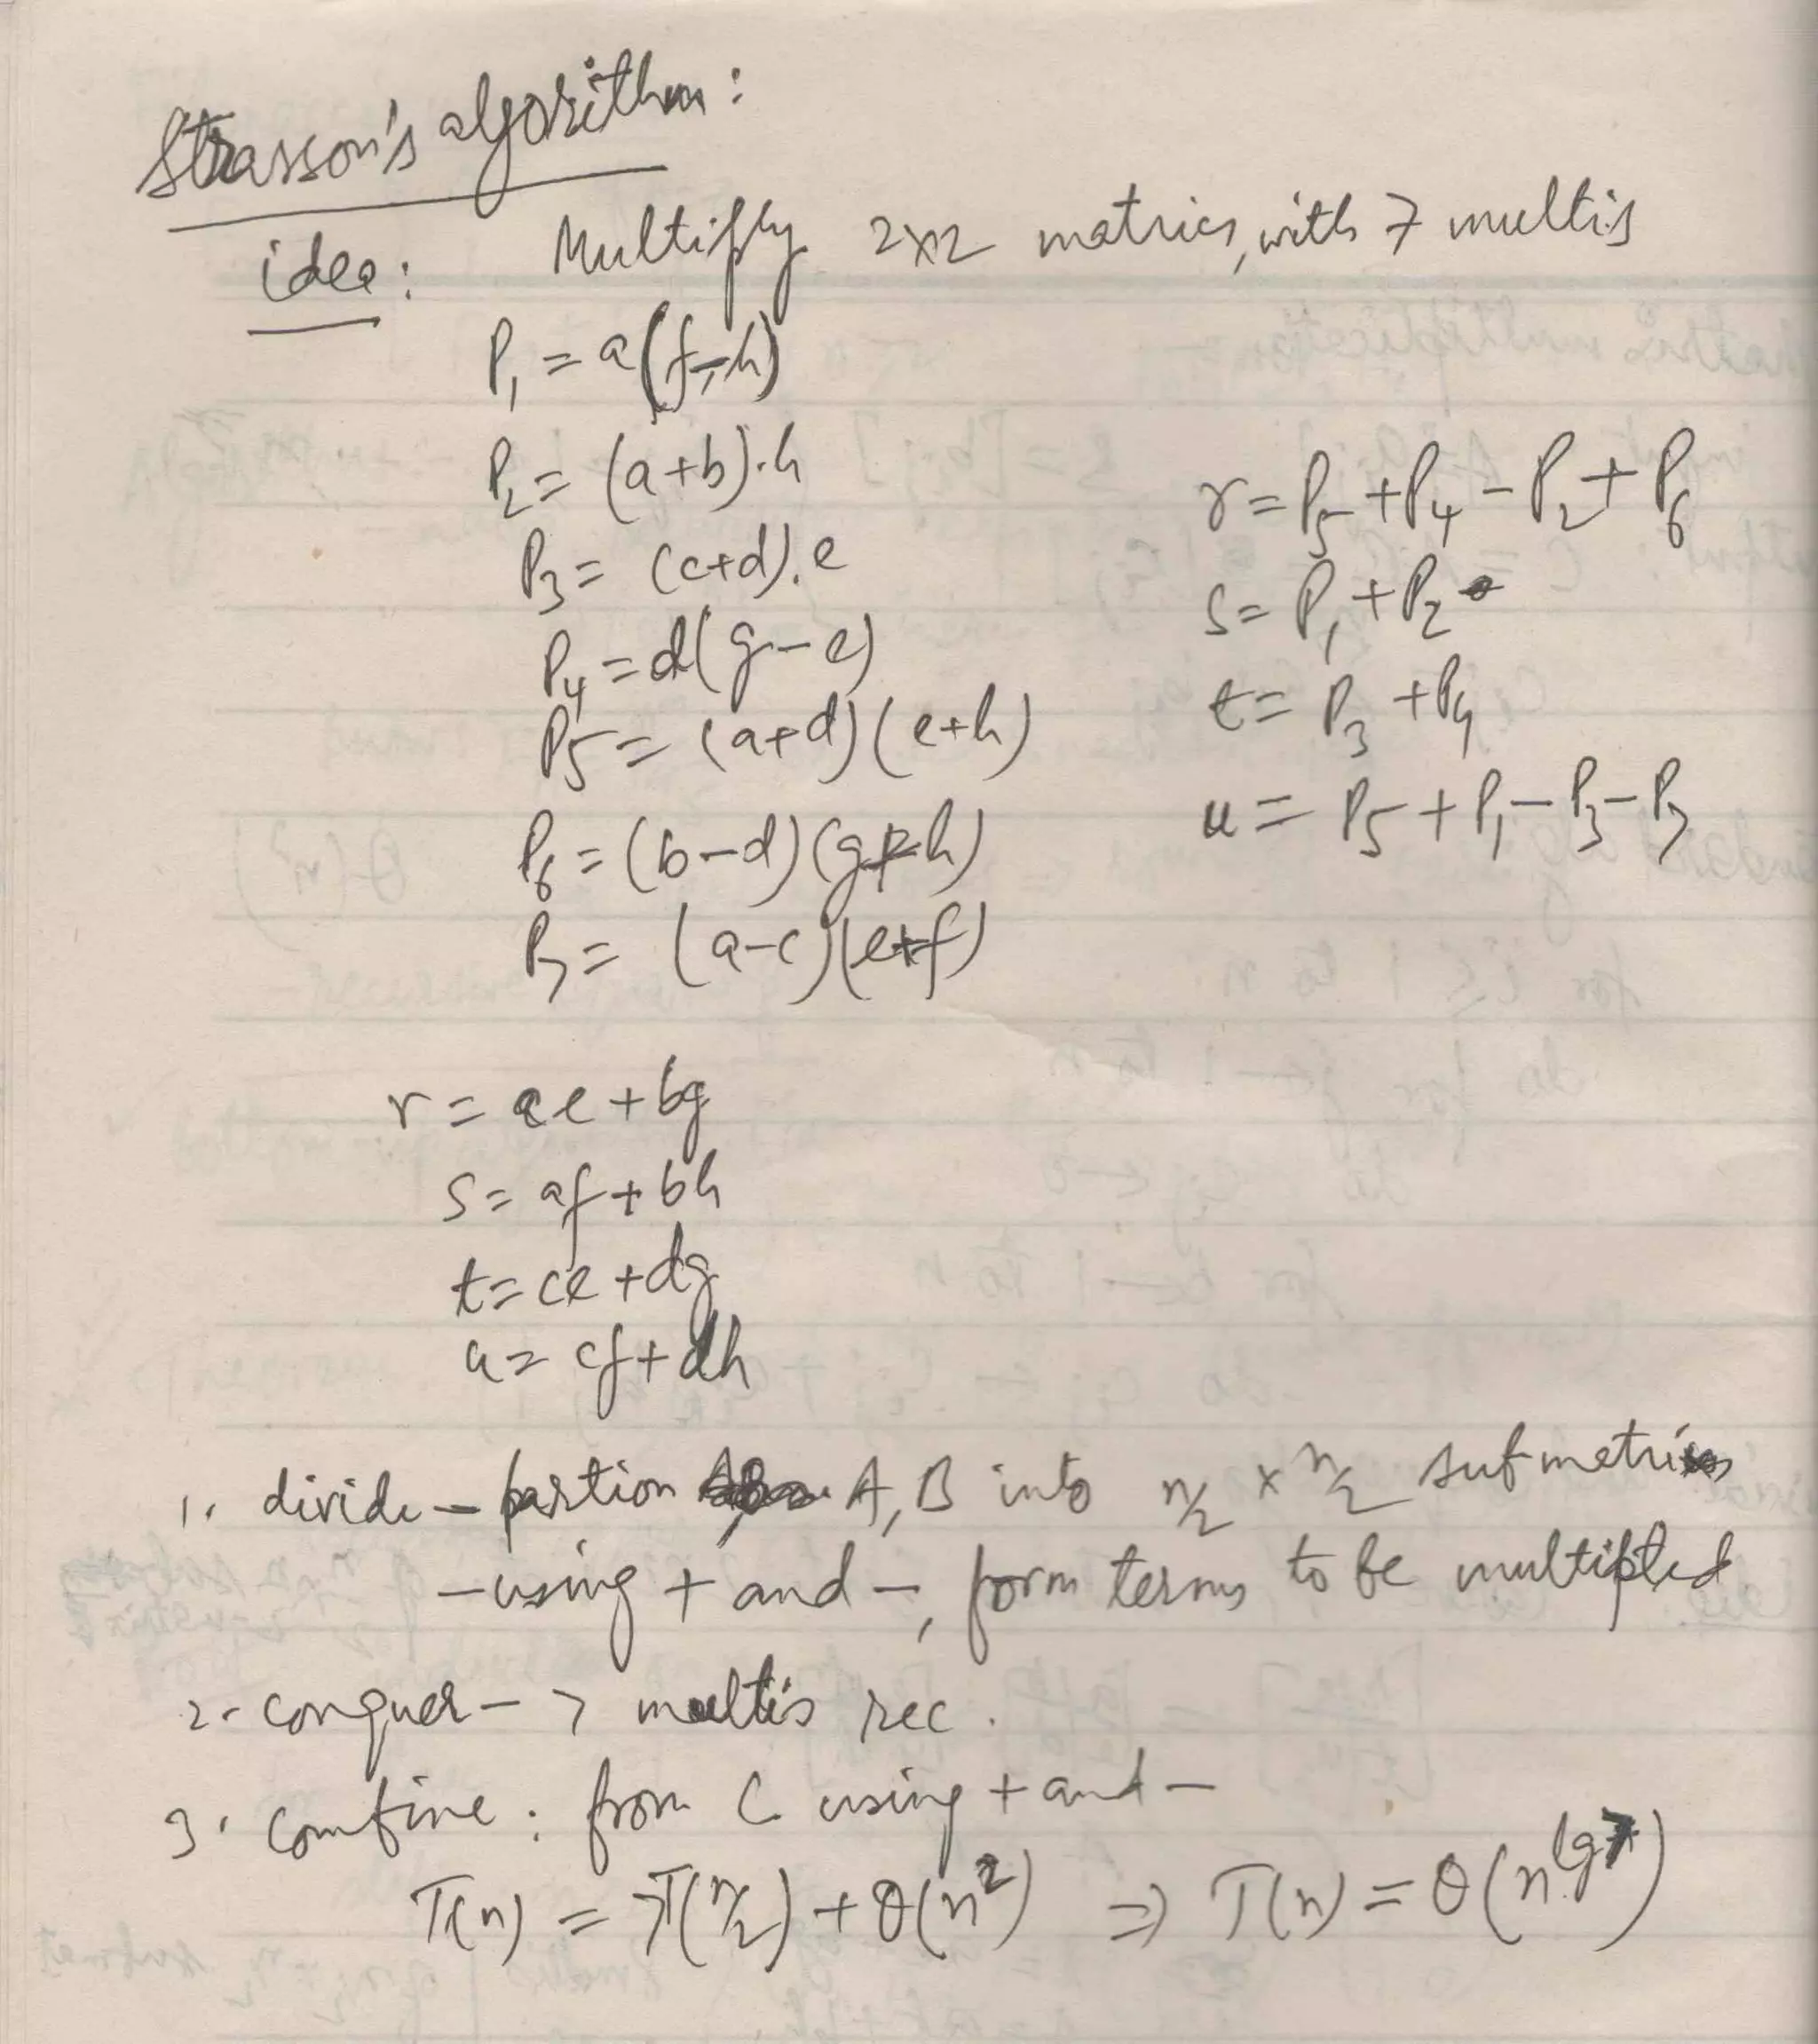 Strasson's algorithm:
idea: Multiply 2×2 matrics, with 7 multis
P₁ = a(f-h)
P₂ = (a+b).h
P₃ = (c+d).e
P₄ = d(g-e)
P5 = (a+d)(e+h)
P₆ = (b-d)(g+h)
P₇ = (a-c)(e+f)
r = P₅ + P₄ - P₂ + P₆
s = P₁ + P₂
t = P₃ + P₄
u = P5 + P₁ - P₃ - P₇
r = ae + bg
s = af + bh
t = ce + dg
u = cf + dh
1. divide - partion A, B into n/2 × n/2 submatrices
- using + and -, form terms to be multiplied
2. conquer - 7 multis rec.
3. combine: from C using + and -
T(n) = 7T(n/2) + θ(n²) ⇒ T(n) = θ(n^lg7)